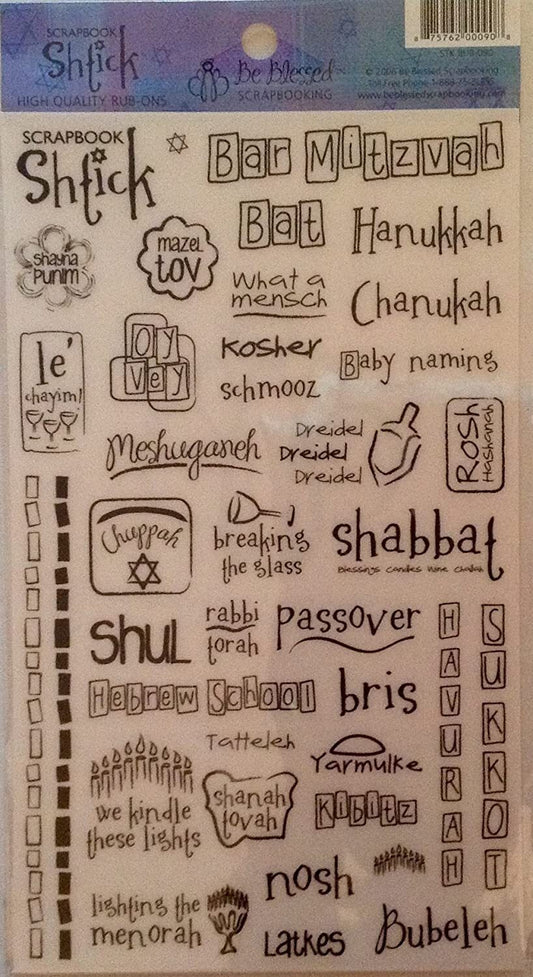 SCRAPBOOK
Shtick
HIGH QUALITY RUB-ONS
Be Blessed
SCRAPBOOKING
8 75762 00090 8
© 2006 Be Blessed Scrapbooking
www.beblessedscrapbooking.com
SCRAPBOOK
Shtick
Bar Mitzvah
shayna
punim
mazel
tov
Bat
Hanukkah
What a
mensch
Chanukah
le'
chayim!
Oy
Vey
Kosher
Baby naming
schmooz
Meshuganeh
Dreidel
Dreidel
Dreidel
Rosh
Hashanah
Chuppah
breaking
the glass
shabbat
Blessings Candles Wine Challah
shul
rabbi
torah
passover
HAVURAH
SUKKOT
Hebrew School
bris
Tatteleh
Yarmulke
we kindle
these lights
shanah
tovah
Kibitz
lighting the
menorah
nosh
Latkes
Bubeleh